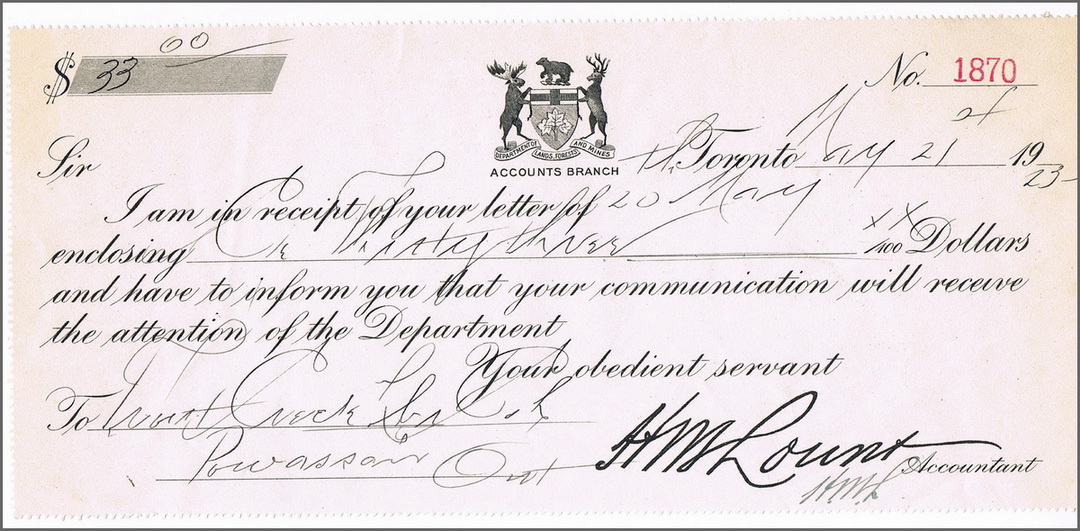 $ 33 00
No. 1870
DEPARTMENT OF LANDS, FORESTS AND MINES
ACCOUNTS BRANCH
Toronto May 21 st 19 23
Sir
I am in receipt of your letter of 20 May
enclosing Ck Thirty three xx/100 Dollars
and have to inform you that your communication will receive
the attention of the Department
Your obedient servant
To Creek Co
Powassan Ont
HM Lount Accountant
HML